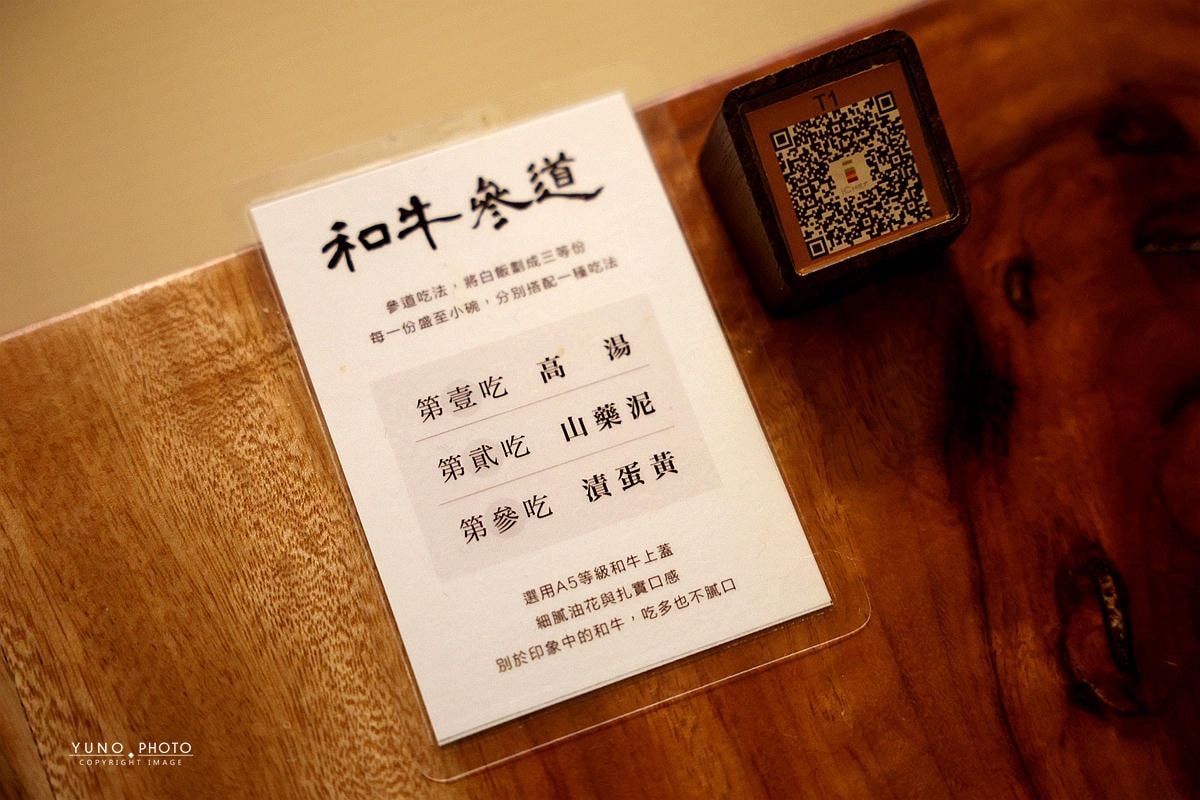 和牛參道
參道吃法，將白飯劃成三等份
每一份盛至小碗，分別搭配一種吃法
第壹吃 高 湯
第貳吃 山藥泥
第參吃 漬蛋黃
選用A5等級和牛上蓋
細膩油花與扎實口感
別於印象中的和牛，吃多也不膩口
T1
iCHEF
YUNO PHOTO
COPYRIGHT IMAGE